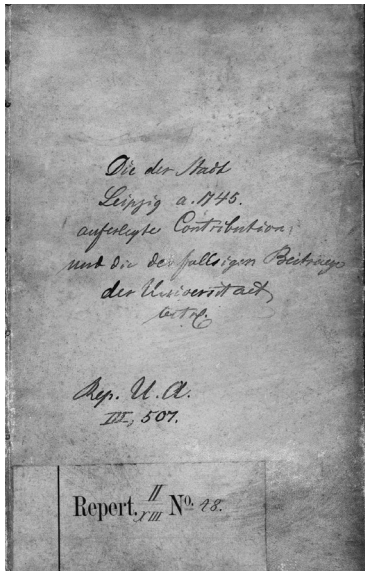 Die der Stadt
Leipzig a. 1745.
auferlegte Contribution,
und die desfallsigen Beitraege
der Universitaet
betr.
Rep. U. A.
III, 507.
Repert. II/XIII No. 28.